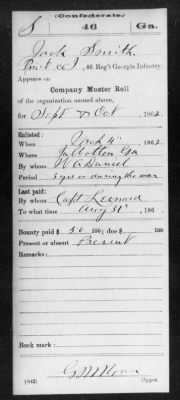 (Confederate.)
S 46 Ga.
Jack Smith
Pvt, Co I, 46 Reg't Georgia Infantry.
Appears on
Company Muster Roll
of the organization named above,
for Sept & Oct, 1862
Enlisted:
When Mch 4, 1862
Where Ga
By whom McDaniel
Period 3 yrs or during the war
Last paid:
By whom Capt Leonard
To what time Aug 31, 186
Bounty paid $ 50 100; due $ 100
Present or absent Present
Remarks:
Book mark:
(642) Copyist.